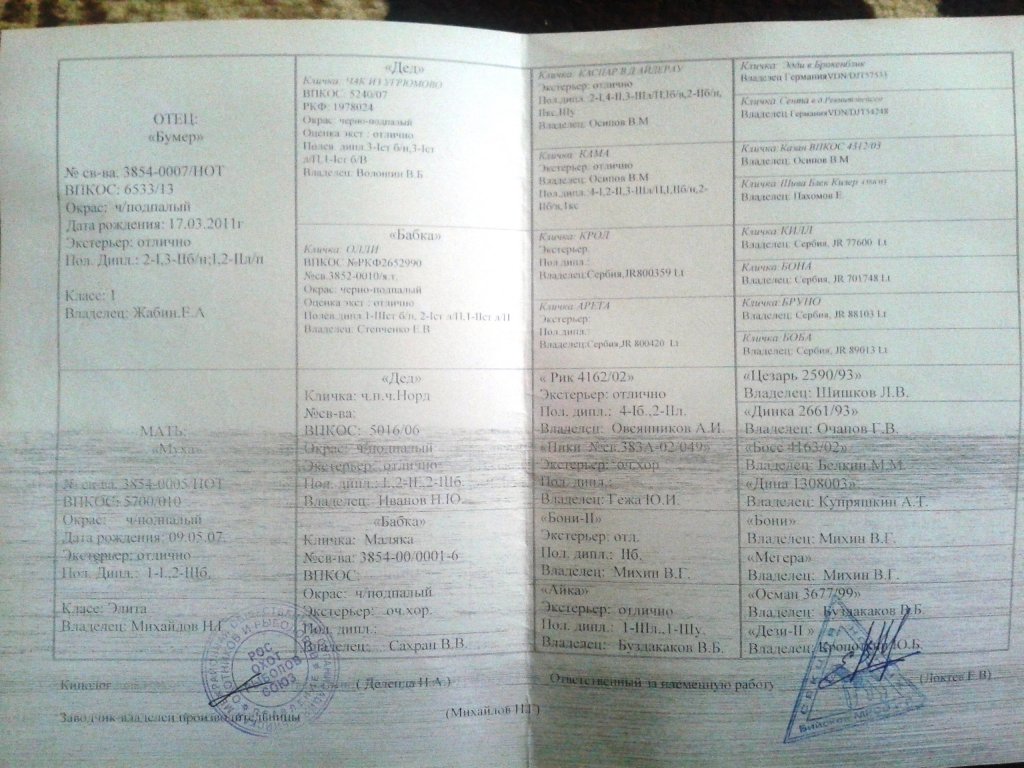 ОТЕЦ:
«Бумер»
№ св-ва. 3854-0007/НОТ
ВПКОС: 6533/13
Окрас: ч/подпалый
Дата рождения: 17.03.2011г
Экстерьер: отлично
Пол. Дипл.: 2-I,3-IIб/п;1,2-IIл/п
Класс: 1
Владелец: Жабин.Е.А
«Дед»
Кличка: ЧАК ИЗ УГРЮМОВО
ВПКОС: 5240/07
РКФ: 1978024
Окрас черно-подпалый
Оценка экст : отлично
Полев дипл.3-Iст б/п,3-Iст
л/П,1-Iст б/В
Владелец: Волошин В.Б
«Бабка»
Кличка: ОЛЛИ
ВПКОС №РКФ2652990
№св.3852-0010/я.т.
Окрас: черно-подпалый
Оценка экст : отлично
Полев дипл 1-IIIст б/п, 2-Iст л/П,1-IIст л/П
Владелец: Степченко Е.В
Кличка: КАСПАР В.Д АЙДЕРАУ
Экстерьер: отлично
Владелец: Осипов В.М
Кличка: КАМА
Экстерьер: отлично
Владелец: Осипов В.М
Кличка: КРОЛ
Экстерьер:
Пол дипл.:
Владелец:Сербия,JR800359 Lt
Кличка: АРЕТА
Экстерьер:
Пол дипл.:
Владелец:Сербия,JR 800420 Lt
Кличка:
Владелец Германия VDN/DJT57533
Кличка: Сента
Владелец Германия
Кличка: Казан ВПКОС 4312/03
Владелец: Осипов В.М
Кличка: Шива Блек Килер
Владелец: Пахомов Е
Кличка: КИЛЛ
Владелец: Сербия, JR 77600 Lt
Кличка: БОНА
Владелец: Сербия, JR 701748 Lt
Кличка: БРУНО
Владелец: Сербия, JR 88103 Lt
Кличка: БОБА
Владелец: Сербия, JR 89013 Lt
МАТЬ:
«Муха»
№ св-ва. 3854-0005/НОТ
ВПКОС: 5700/010
Окрас: ч/подпалый
Дата рождения: 09.05.07.
Экстерьер: отлично
Пол. Дипл.: 1-I.,2-IIIб.
Класс: Элита
Владелец: Михайлов Н.Г
«Дед»
Кличка: ч.п.ч.Норд
№св-ва:
ВПКОС: 5016/06
Окрас: ч/подпалый
Экстерьер: отлично
Пол. дипл.: I.,2-II.,2-IIIб.
Владелец: Иванов Н.Ю.
«Бабка»
Кличка: Маляка
№св-ва: 3854-00/0001-6
ВПКОС:
Окрас: ч/подпалый
Экстерьер: оч.хор.
Пол. дипл.:
Владелец: Сахран В.В.
« Рик 4162/02»
Экстерьер: отлично
Пол. дипл.: 4-Iб.,2-IIл.
Владелец: Овсянников А.И.
«Пики №св.383А-02/049»
Экстерьер: оч.хор
Пол. дипл.:
Владелец: Гежа Ю.И.
«Бони-II»
Экстерьер: отл.
Пол. дипл.: IIб.
Владелец: Михин В.Г.
«Айка»
Экстерьер: отлично
Пол. дипл.: 1-IIIл.,1-IIIу.
Владелец: Буздакаков В.Б.
«Цезарь 2590/93»
Владелец: Шишков Л.В.
«Динка 2661/93»
Владелец: Очапов Г.В.
«Босс 4163/02»
Владелец: Белкин М.М.
«Дина 1308003»
Владелец: Купряшкин А.Т.
«Бони»
Владелец: Михин В.Г.
«Мегера»
Владелец: Михин В.Г.
«Осман 3677/99»
Владелец: Буздакаков В.Б.
«Дези-II »
Владелец: Ю.Б.
Кинолог (Делепда Н.А.)
Ответственный за племенную работу (Локтев Е.В)
Заводчик-владелец производительницы (Михайлов Н.Г)
РОС
ОХОТ
РЫБОЛОВ
СОЮЗ